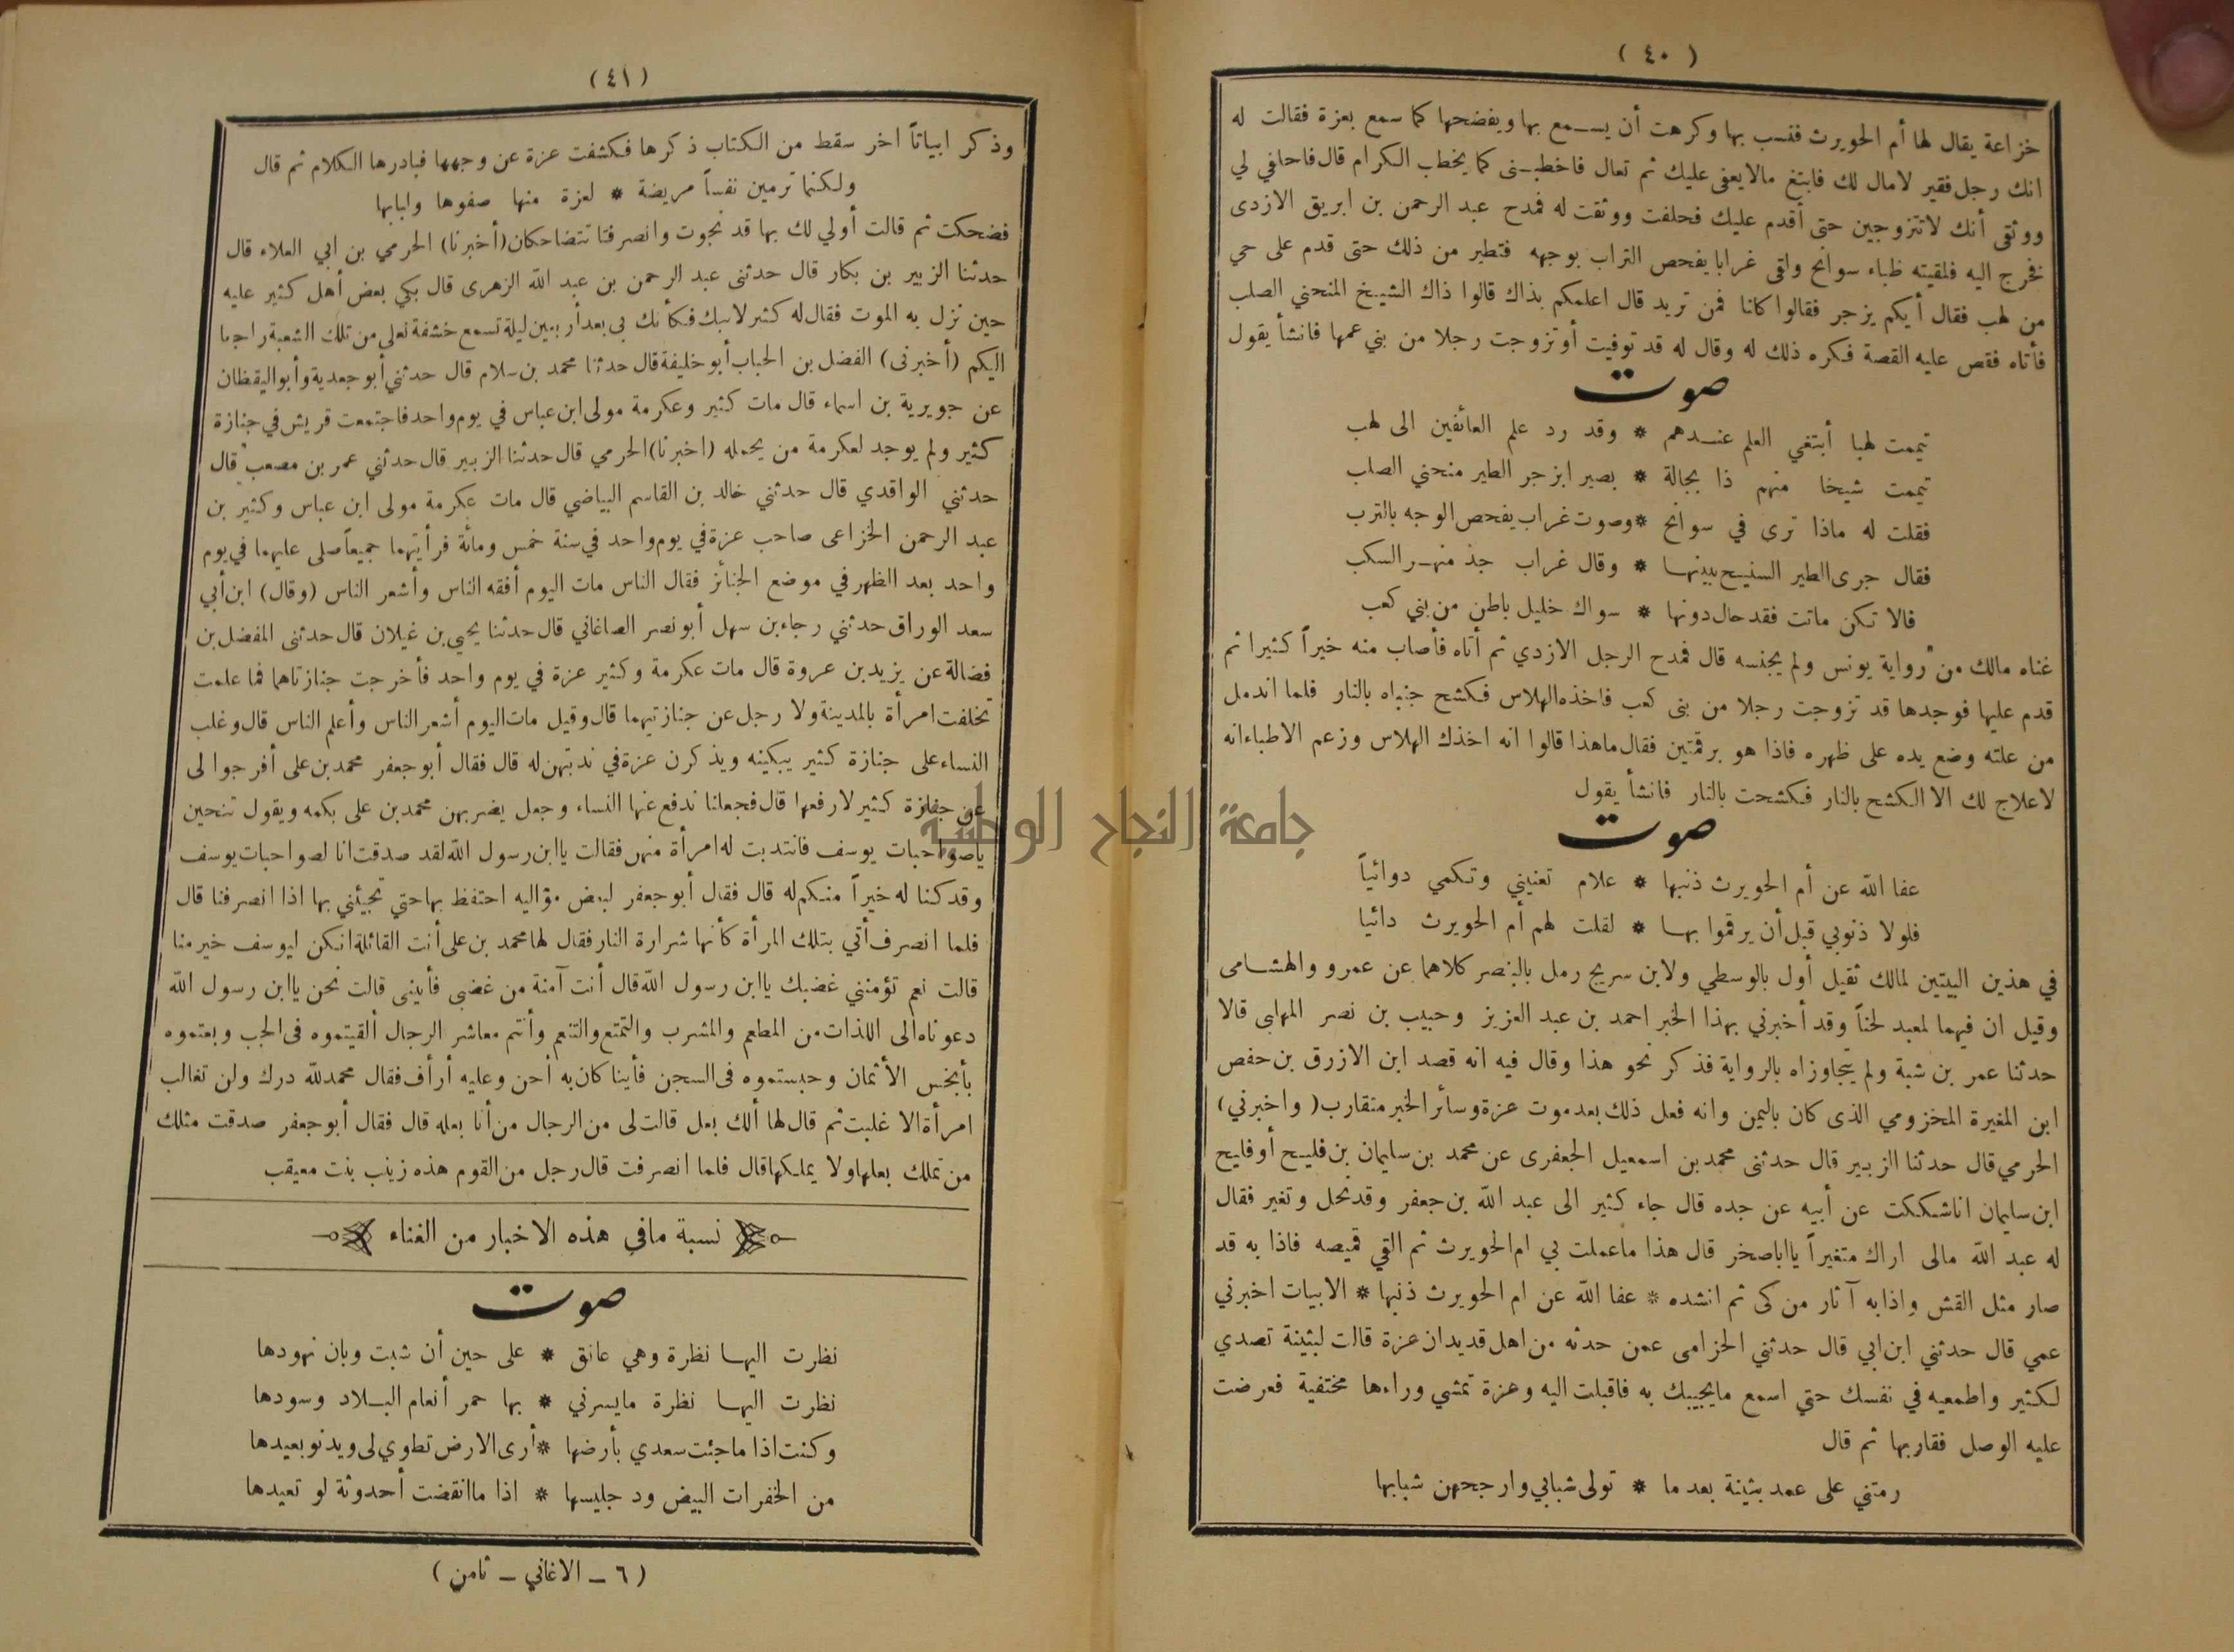 ( ٤٠ )
خزاعة يقال لها أم الحويرث فنسب بها وكرهت أن يسمع بها ويفضحها كما سمع بعزة فقالت له
انك رجل فقير لا مال لك فابتغ مالا يعفى عليك ثم تعال فاخطبنى كما يخطب الكرام قال فاحلفي لي
ووثقى أنك لا تتزوجين حتى أقدم عليك فحلفت ووثقت له فمدح عبد الرحمن بن ابريق الازدى
فخرج اليه فلقيته ظباء سوانح ولقى غرابا يفحص التراب بوجهه فتطير من ذلك حتى قدم على حي
من لهب فقال أيكم يزجر فقالوا كلنا فمن تريد قال اعلمكم بذاك قالوا ذاك الشيخ المنحني الصلب
فأتاه فقص عليه القصة فكره ذلك له وقال له قد توفيت أو تزوجت رجلا من بني عمها فانشأ يقول
صوت
تيممت لهبا أبتغي العلم عندهم * وقد رد علم العائفين الى لهب
تيممت شيخا منهم ذا بجالة * بصيرا بزجر الطير منحني الصلب
فقلت له ماذا ترى في سوانح * وصوت غراب يفحص الوجه بالترب
فقال جرى الطير السنيح ببينها * وقال غراب جد منهمر السكب
فالا تكن ماتت فقد حال دونها * سواك خليل باطن من بني كعب
غناه مالك من رواية يونس ولم يجنسه قال فمدح الرجل الازدي ثم أتاه فأصاب منه خيراً كثيرا ثم
قدم عليها فوجدها قد تزوجت رجلا من بنى كعب فاخذه الهلاس فكشح جنباه بالنار فلما اندمل
من علته وضع يده على ظهره فاذا هو برقمتين فقال ماهذا قالوا انه اخذك الهلاس وزعم الاطباء انه
لا علاج لك الا الكشح بالنار فكشحت بالنار فانشأ يقول
صوت
عفا الله عن أم الحويرث ذنبها * علام تعنيني وتكمي دوائياً
فلولا ذنوبي قبل أن يرقموا بها * لقلت لهم أم الحويرث دائيا
في هذين البيتين لمالك ثقيل أول بالوسطي ولابن سريج رمل بالبنصر كلاهما عن عمرو والهشامى
وقيل ان فيهما لمعبد لحناً وقد أخبرني بهذا الخبر احمد بن عبد العزيز وحبيب بن نصر المهلبى قالا
حدثنا عمر بن شبة ولم يتجاوزاه بالرواية فذكر نحو هذا وقال فيه انه قصد ابن الازرق بن حفص
ابن المغيرة المخزومي الذى كان باليمن وانه فعل ذلك بعد موت عزة وسائر الخبر متقارب ( واخبرني )
الحرمي قال حدثنا الزبير قال حدثنى محمد بن اسمعيل الجعفرى عن محمد بن سليمان بن فليح أو فليح
ابن سليمان انا شككت عن أبيه عن جده قال جاء كثير الى عبد الله بن جعفر وقد نحل وتغير فقال
له عبد الله مالى اراك متغيراً يا اباصخر قال هذا ما عملت بي ام الحويرث ثم القي قميصه فاذا به قد
صار مثل القش واذا به آثار من كى ثم انشده * عفا الله عن ام الحويرث ذنبها * الابيات اخبرني
عمي قال حدثني ابن ابي قال حدثني الحزامى عمن حدثه من اهل قديد ان عزة قالت لبثينة تصدي
لكثير واطمعيه في نفسك حتي اسمع ما يجيبك به فاقبلت اليه وعزة تمشي وراءها مختفية فعرضت
عليه الوصل فقاربها ثم قال
رمتني على عمد بثينة بعد ما * تولى شبابي وارجحن شبابها
(٤١)
وذكر ابياتاً اخر سقط من الكتاب ذكرها فكشفت عزة عن وجهها فبادرها الكلام ثم قال
ولكنما ترمين نفساً مريضة * لعزة منها صفوها ولبابها
فضحكت ثم قالت أولي لك بها قد نجوت وانصرفتا تتضاحكان (أخبرنا) الحرمي بن ابي العلاء قال
حدثنا الزبير بن بكار قال حدثنى عبد الرحمن بن عبد الله الزهرى قال بكي بعض أهل كثير عليه
حين نزل به الموت فقال له كثير لا تبك فكأنك بي بعد أربعين ليلة تسمع خشفة نعلى من تلك الشعبة راجعا
اليكم (أخبرنى) الفضل بن الحباب أبو خليفة قال حدثنا محمد بن سلام قال حدثني أبو جعدية وأبو اليقظان
عن جويرية بن اسماء قال مات كثير وعكرمة مولى ابن عباس في يوم واحد فاجتمعت قريش في جنازة
كثير ولم يوجد لعكرمة من يحمله (اخبرنا) الحرمي قال حدثنا الزبير قال حدثني عمر بن مصعب قال
حدثني الواقدي قال حدثني خالد بن القاسم البياضي قال مات عكرمة مولى ابن عباس وكثير بن
عبد الرحمن الخزاعى صاحب عزة في يوم واحد في سنة خمس ومائة فرأيتهما جميعاً صلى عليهما في يوم
واحد بعد الظهر في موضع الجنائز فقال الناس مات اليوم أفقه الناس وأشعر الناس (وقال) ابن أبي
سعد الوراق حدثني رجاء بن سهل أبو نصر الصاغاني قال حدثنا يحيى بن غيلان قال حدثنى المفضل بن
فضالة عن يزيد بن عروة قال مات عكرمة وكثير عزة في يوم واحد فأخرجت جنازتاهما فما علمت
تخلفت امرأة بالمدينة ولا رجل عن جنازتيهما قال وقيل مات اليوم أشعر الناس وأعلم الناس قال وغلب
النساء على جنازة كثير يبكينه ويذكرن عزة في ندبتهن له قال فقال أبو جعفر محمد بن على أفرجوا لى
عن جنازة كثير لارفعها قال فجعلنا ندفع عنها النساء وجعل يضربهن محمد بن على بكمه ويقول تنحين
ياصواحبات يوسف فانتدبت له امرأة منهن فقالت يا ابن رسول الله لقد صدقت انا لصواحبات يوسف
وقد كنا له خيراً منكم له قال فقال أبو جعفر لبعض مواليه احتفظ بها حتي تجيئني بها اذا انصرفنا قال
فلما انصرف أتي بتلك المرأة كأنها شرارة النار فقال لها محمد بن على أنت القائلة انكن ليوسف خير منا
قالت نعم تؤمنني غضبك يا ابن رسول الله قال أنت آمنة من غضبى فأبينى قالت نحن يا ابن رسول الله
دعوناه الى اللذات من المطعم والمشرب والتمتع والتنعم وأنتم معاشر الرجال ألقيتموه فى الجب وبعتموه
بأبخس الأثمان وحبستموه فى السجن فأينا كان به أحن وعليه أرأف فقال محمد لله درك ولن تغالب
امرأة الا غلبت ثم قال لها ألك بعل قالت لى من الرجال من أنا بعله قال فقال أبو جعفر صدقت مثلك
من تملك بعلها ولا يملكها قال فلما انصرفت قال رجل من القوم هذه زينب بنت معيقب
نسبة مافي هذه الاخبار من الغناء
صوت
نظرت اليها نظرة وهي عاتق * على حين أن شبت وبان نهودها
نظرت اليها نظرة مايسرني * بها حمر أنعام البلاد وسودها
وكنت اذا ما جئت سعدي بأرضها * أرى الارض تطوي لى ويدنو بعيدها
من الخفرات البيض ود جليسها * اذا ما انقضت أحدوثة لو تعيدها
( ٦ – الاغاني – ثامن )
جامعة النجاح الوطنية